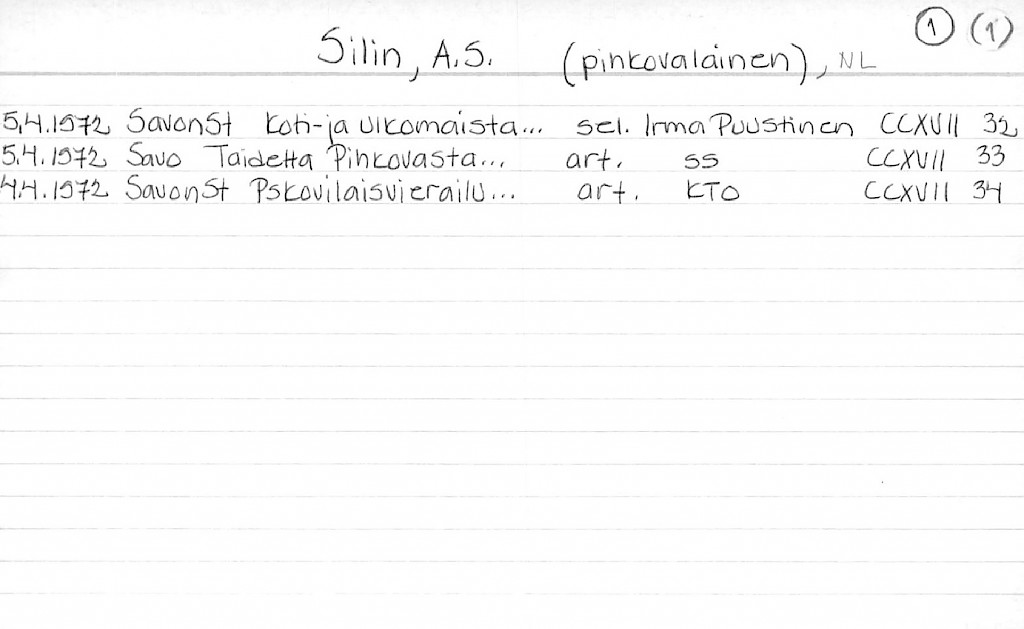 ① (1)
Silin, A.S. (pinkovalainen), NL
5.4.1972 SavonSt Koti-ja ulkomaista... sel. Irma Puustinen CCXVII 32
5.4.1972 Savo Taidetta Pinkovasta... art. ss CCXVII 33
4.4.1972 SavonSt Pskovilaisvierailu... art. KTO CCXVII 34